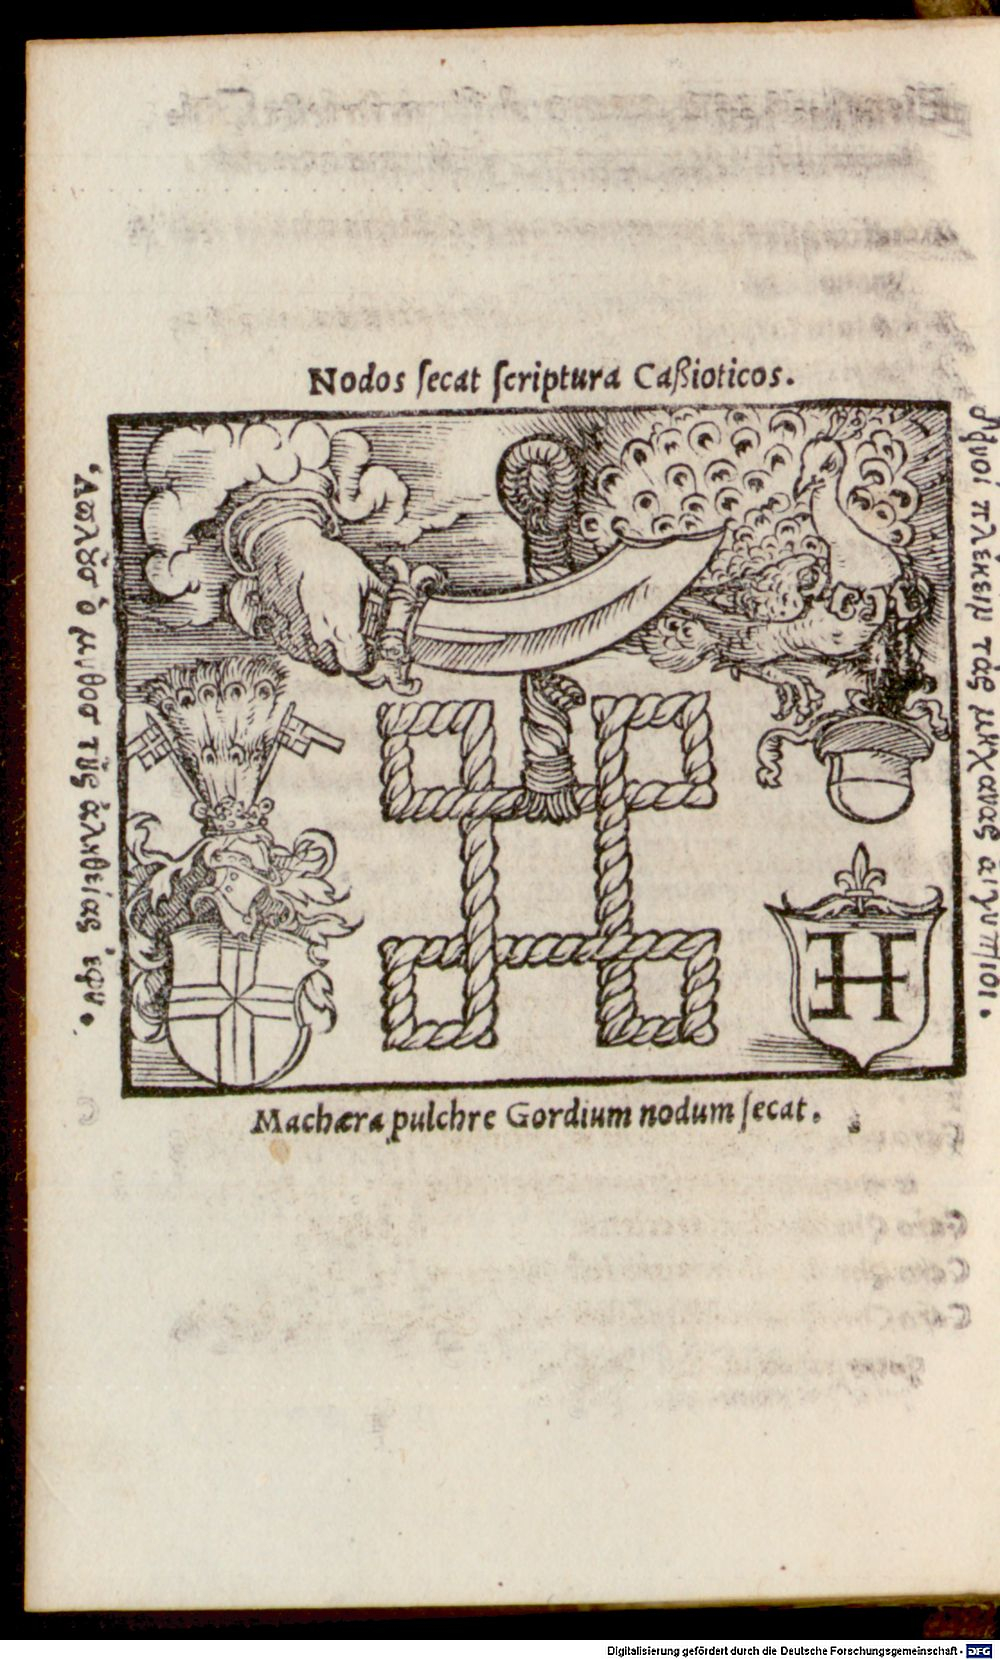 Nodos ſecat ſcriptura Caßioticos.
Ἁπλοῦσ ὁ μυθοσ τῆς ἀληθείας ἔφυ.
δεινοὶ πλέκειν τὰς μηχανας αιγυπτιοι.
H
Machæra pulchre Gordium nodum ſecat.
Digitalisierung gefördert durch die Deutsche Forschungsgemeinschaft - DFG